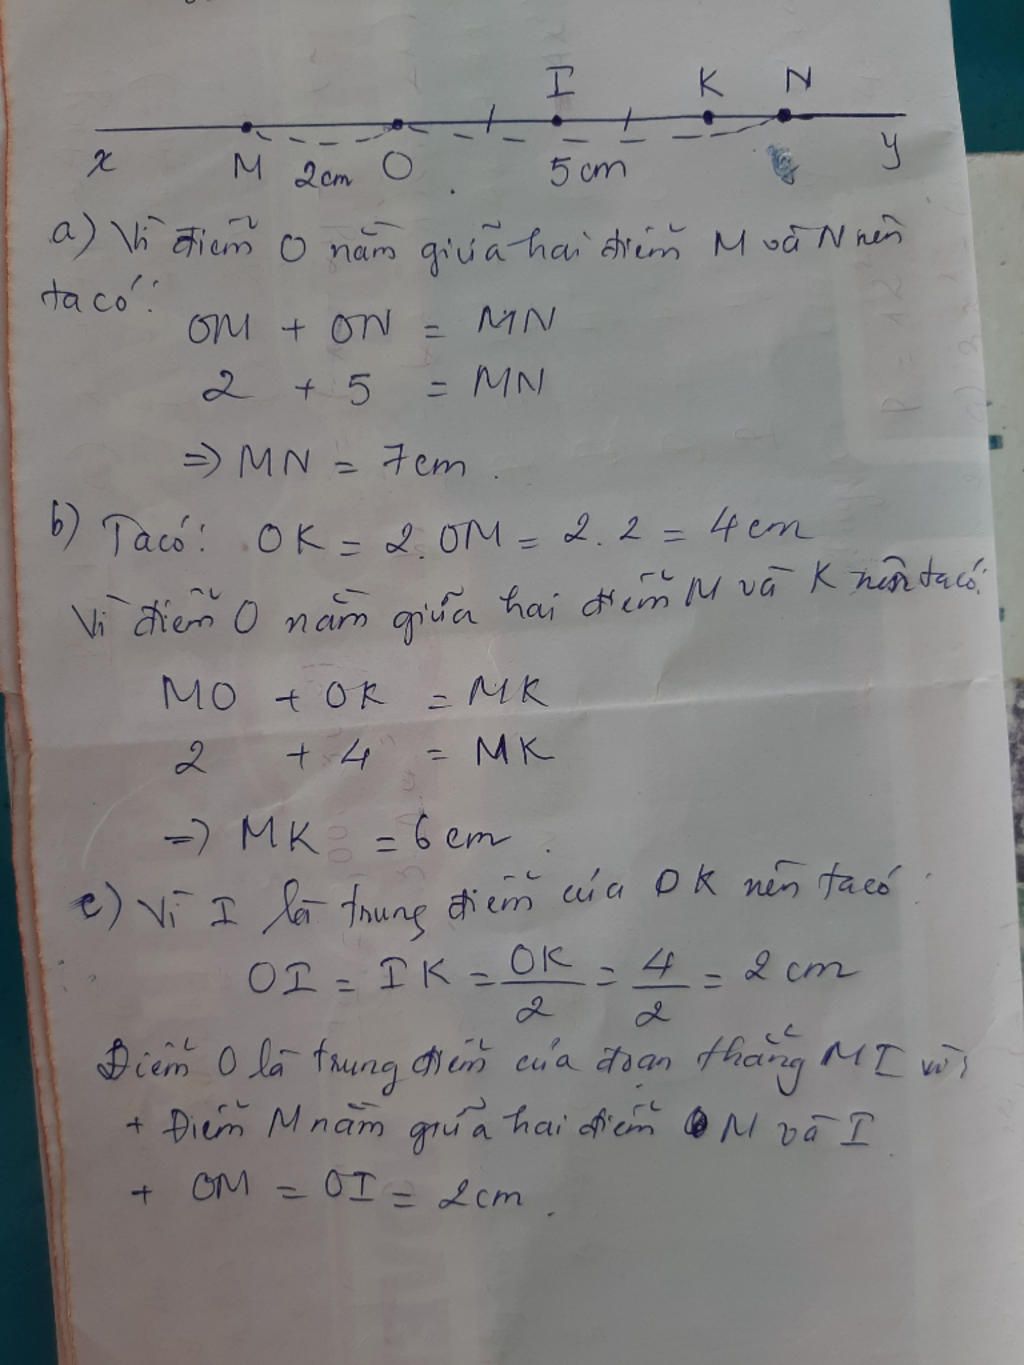 I K N
x M 2cm O 5cm y
a) Vì điểm O nằm giữa hai điểm M và N nên
ta có:
OM + ON = MN
2 + 5 = MN
=> MN = 7cm.
b) Ta có: OK = 2.OM = 2.2 = 4cm
Vì điểm O nằm giữa hai điểm M và K nên ta có:
MO + OK = MK
2 + 4 = MK
=> MK = 6cm.
c) Vì I là trung điểm của OK nên ta có:
OI = IK = OK/2 = 4/2 = 2 cm
Điểm O là trung điểm của đoạn thẳng MI vì
+ Điểm M nằm giữa hai điểm M và I
+ OM = OI = 2cm.